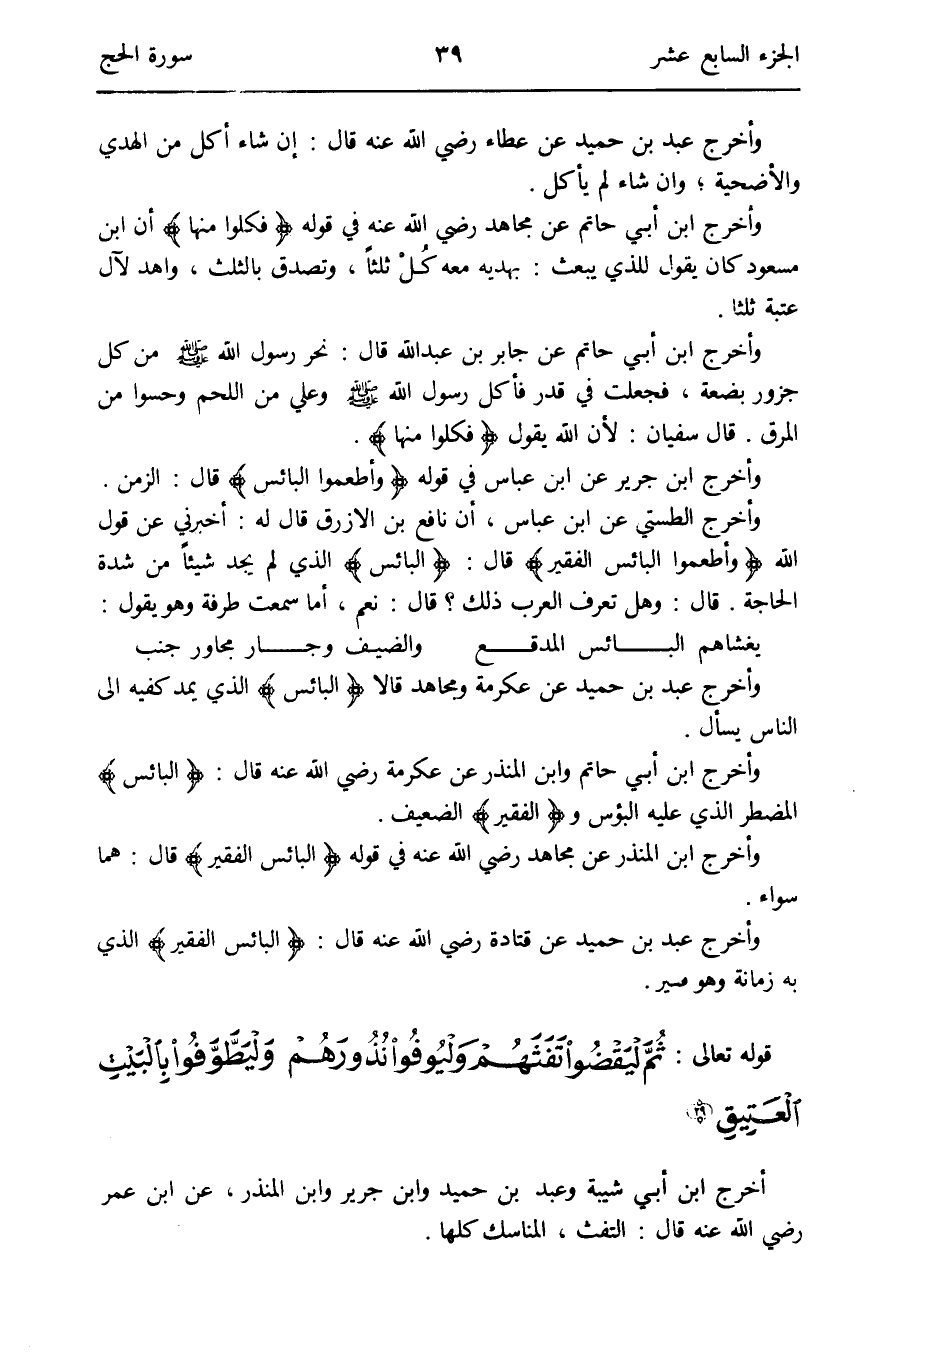 الجزء السابع عشر ٣٩ سورة الحج
وأخرج عبد بن حميد عن عطاء رضي الله عنه قال : إن شاء أكل من الهدي
والأضحية ؛ وان شاء لم يأكل .
وأخرج ابن أبي حاتم عن مجاهد رضي الله عنه في قوله ﴿ فكلوا منها ﴾ أن ابن
مسعود كان يقول للذي يبعث : بهديه معه كُلْ ثلثاً ، وتصدق بالثلث ، واهد لآل
عتبة ثلثا .
وأخرج ابن أبي حاتم عن جابر بن عبدالله قال : نحر رسول الله ﷺ من كل
جزور بضعة ، فجعلت في قدر فأكل رسول الله ﷺ وعلي من اللحم وحسوا من
المرق . قال سفيان : لأن الله يقول ﴿ فكلوا منها ﴾ .
وأخرج ابن جرير عن ابن عباس في قوله ﴿ وأطعموا البائس ﴾ قال : الزمن .
وأخرج الطستي عن ابن عباس ، أن نافع بن الازرق قال له : أخبرني عن قول
الله ﴿ وأطعموا البائس الفقير ﴾ قال : ﴿ البائس ﴾ الذي لم يجد شيئاً من شدة
الحاجة . قال : وهل تعرف العرب ذلك ؟ قال : نعم ، أما سمعت طرفة وهو يقول :
يغشاهم البـــــائس المدقـــــع والضيـف وجـــــار مجاور جنب
وأخرج عبد بن حميد عن عكرمة ومجاهد قالا ﴿ البائس ﴾ الذي يمد كفيه الى
الناس يسأل .
وأخرج ابن أبي حاتم وابن المنذر عن عكرمة رضي الله عنه قال : ﴿ البائس ﴾
المضطر الذي عليه البؤس و ﴿ الفقير ﴾ الضعيف .
وأخرج ابن المنذر عن مجاهد رضي الله عنه في قوله ﴿ البائس الفقير ﴾ قال : هما
سواء .
وأخرج عبد بن حميد عن قتادة رضي الله عنه قال : ﴿ البائس الفقير ﴾ الذي
به زمانة وهو
قوله تعالى : ثُمَّ لْيَقْضُوا۟ تَفَثَهُمْ وَلْيُوفُوا۟ نُذُورَهُمْ وَلْيَطَّوَّفُوا۟ بِٱلْبَيْتِ
ٱلْعَتِيقِ ٢٩
أخرج ابن أبي شيبة وعبد بن حميد وابن جرير وابن المنذر ، عن ابن عمر
رضي الله عنه قال : التفث ، المناسك كلها .